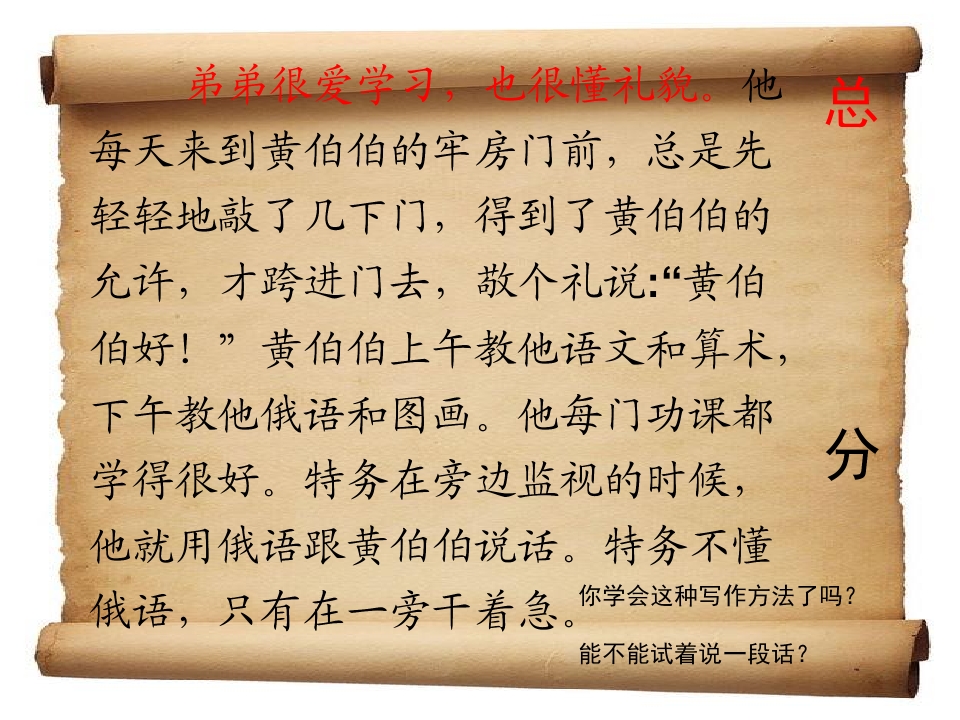 弟弟很爱学习，也很懂礼貌。他
每天来到黄伯伯的牢房门前，总是先
轻轻地敲了几下门，得到了黄伯伯的
允许，才跨进门去，敬个礼说:“黄伯
伯好！”黄伯伯上午教他语文和算术，
下午教他俄语和图画。他每门功课都
学得很好。特务在旁边监视的时候，
他就用俄语跟黄伯伯说话。特务不懂
俄语，只有在一旁干着急。
总
分
你学会这种写作方法了吗？
能不能试着说一段话？